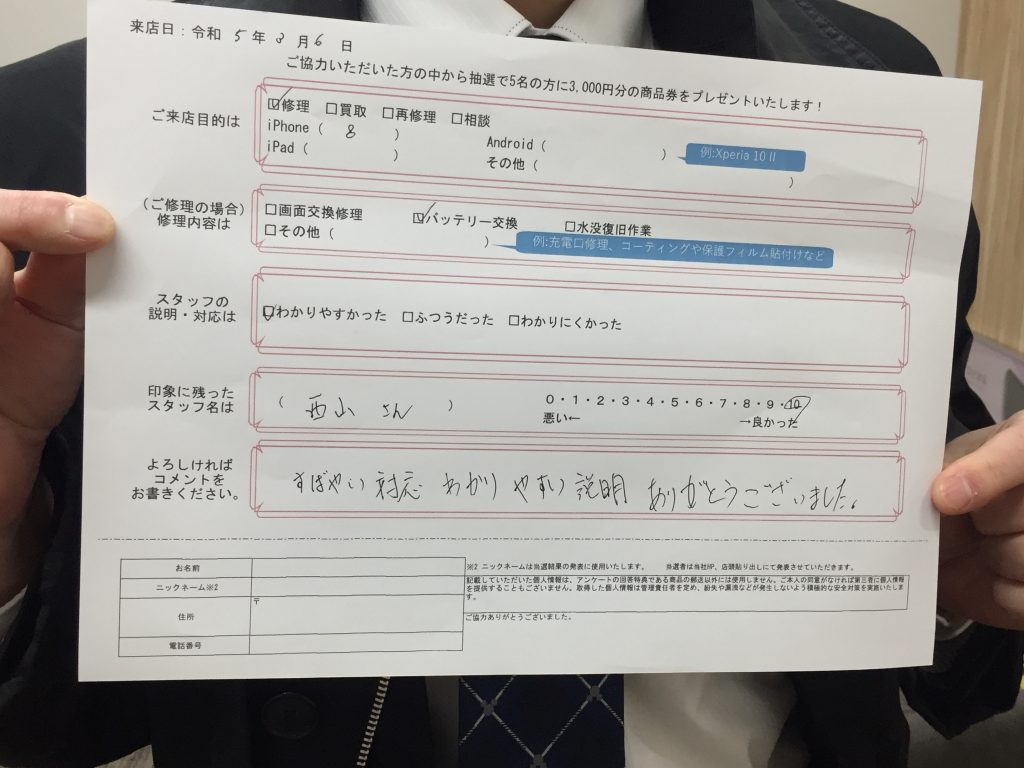 来店日：令和 5 年 3 月 6 日
ご協力いただいた方の中から抽選で5名の方に3,000円分の商品券をプレゼントいたします！
ご来店目的は
☑修理 □買取 □再修理 □相談
iPhone ( 8 ) Android ( ) 例:Xperia 10 II
iPad ( ) その他 ( )
(ご修理の場合)
修理内容は
□画面交換修理 ☑バッテリー交換 □水没復旧作業
□その他 ( ) 例:充電口修理、コーティングや保護フィルム貼付けなど
スタッフの
説明・対応は
☑わかりやすかった □ふつうだった □わかりにくかった
印象に残った
スタッフ名は
( 西山 さん )
0・1・2・3・4・5・6・7・8・9・10
悪い← →良かった
よろしければ
コメントを
お書きください。
すばやい対応 わかりやすい説明 ありがとうございました。
お名前
ニックネーム※2
住所 〒
電話番号
※2 ニックネームは当選結果の発表に使用いたします。 当選者は当社HP、店頭貼り出しにて発表させていただきます。
記載していただいた個人情報は、アンケートの回答特典である商品の郵送以外には使用しません。ご本人の同意がなければ第三者に個人情報
を提供することもございません。取得した個人情報は管理責任者を定め、紛失や漏洩などが発生しないよう積極的な安全対策を実施いたしま
す。
ご協力ありがとうございました。